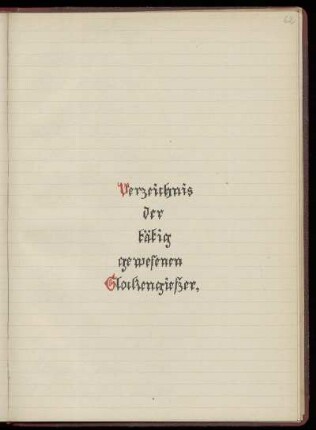 62
Verzeichnis
der
tätig
gewesenen
Glockengießer.